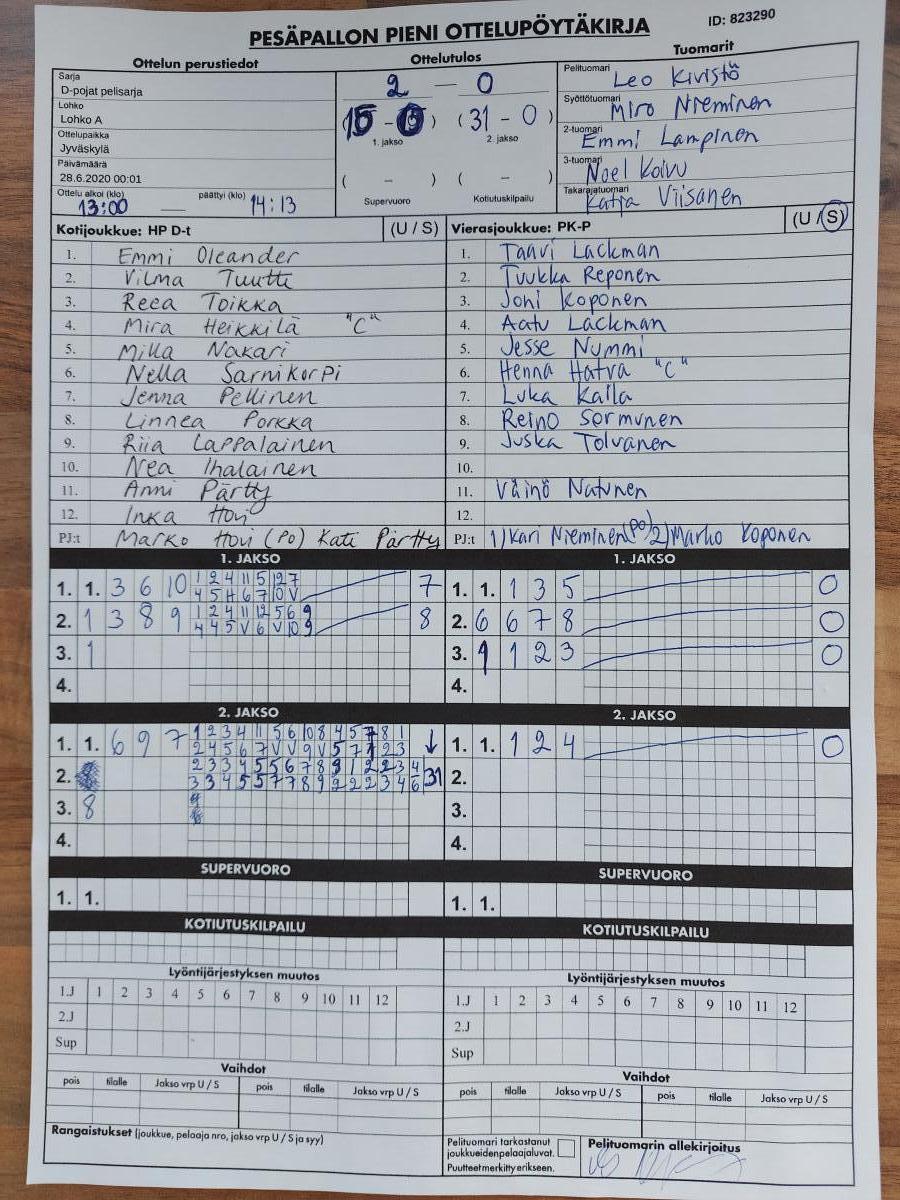 PESÄPALLON PIENI OTTELUPÖYTÄKIRJA
ID: 823290
Ottelun perustiedot
Sarja
D-pojat pelisarja
Lohko
Lohko A
Ottelupaikka
Jyväskylä
Päivämäärä
28.6.2020 00:01
Ottelu alkoi (klo) 13:00 — päättyi (klo) 14:13
Ottelutulos
2 — 0
(15 - 0) (31 - 0)
1. jakso 2. jakso
( - ) ( - )
Supervuoro Kotiutuskilpailu
Tuomarit
Pelituomari Leo Kivistö
Syöttötuomari Miro Nieminen
2-tuomari Emmi Lampinen
3-tuomari Noel Koivu
Takarajatuomari Katja Viisanen
Kotijoukkue: HP D-t (U / S)
1. Emmi Oleander
2. Vilma Tuutti
3. Reea Toikka
4. Mira Heikkilä "C"
5. Milla Nakari
6. Nella Sarnikorpi
7. Jenna Pellinen
8. Linnea Porkka
9. Riia Lappalainen
10. Nea Ihalainen
11. Anni Pärtty
12. Inka Hovi
PJ:t Marko Hovi (PO) Kati Pärtty
Vierasjoukkue: PK-P (U / S)
1. Taavi Lackman
2. Tuukka Reponen
3. Joni Koponen
4. Aatu Lackman
5. Jesse Nummi
6. Henna Hatva "C"
7. Luka Kaila
8. Reino Sormunen
9. Juska Tolvanen
10.
11. Väinö Natunen
12.
PJ:t 1) Kari Nieminen (PO) 2) Marko Koponen
1. JAKSO
1. 1. 3 6 10 1 2 4 11 5 12 7 7
4 5 H 6 7 10 V
2. 1 3 8 9 1 2 4 11 12 5 6 9 8
4 4 5 V 6 V 10 9
3. 1
4.
1. JAKSO
1. 1. 1 3 5 0
2. 6 6 7 8 0
3. 1 1 2 3 0
4.
2. JAKSO
1. 1. 6 9 7 1 2 3 4 11 5 6 10 8 4 5 7 8 1
2 4 5 6 7 V V 9 V 5 7 1 2 3
2. 2 3 3 4 5 5 6 7 8 9 1 2 2 3 4 31
3 3 4 5 5 7 7 8 9 2 2 2 3 4 6
3. 8
4.
2. JAKSO
1. 1. 1 2 4 0
2.
3.
4.
SUPERVUORO
1. 1.
SUPERVUORO
1. 1.
KOTIUTUSKILPAILU
KOTIUTUSKILPAILU
Lyöntijärjestyksen muutos
1.J 1 2 3 4 5 6 7 8 9 10 11 12
2.J
Sup
Lyöntijärjestyksen muutos
1.J 1 2 3 4 5 6 7 8 9 10 11 12
2.J
Sup
Vaihdot
pois tilalle Jakso vrp U / S pois tilalle Jakso vrp U / S
Vaihdot
pois tilalle Jakso vrp U / S pois tilalle Jakso vrp U / S
Rangaistukset (joukkue, pelaaja nro, jakso vrp U / S ja syy)
Pelituomari tarkastanut
joukkueidenpelaajaluvat.
Puutteet merkitty erikseen.
Pelituomarin allekirjoitus